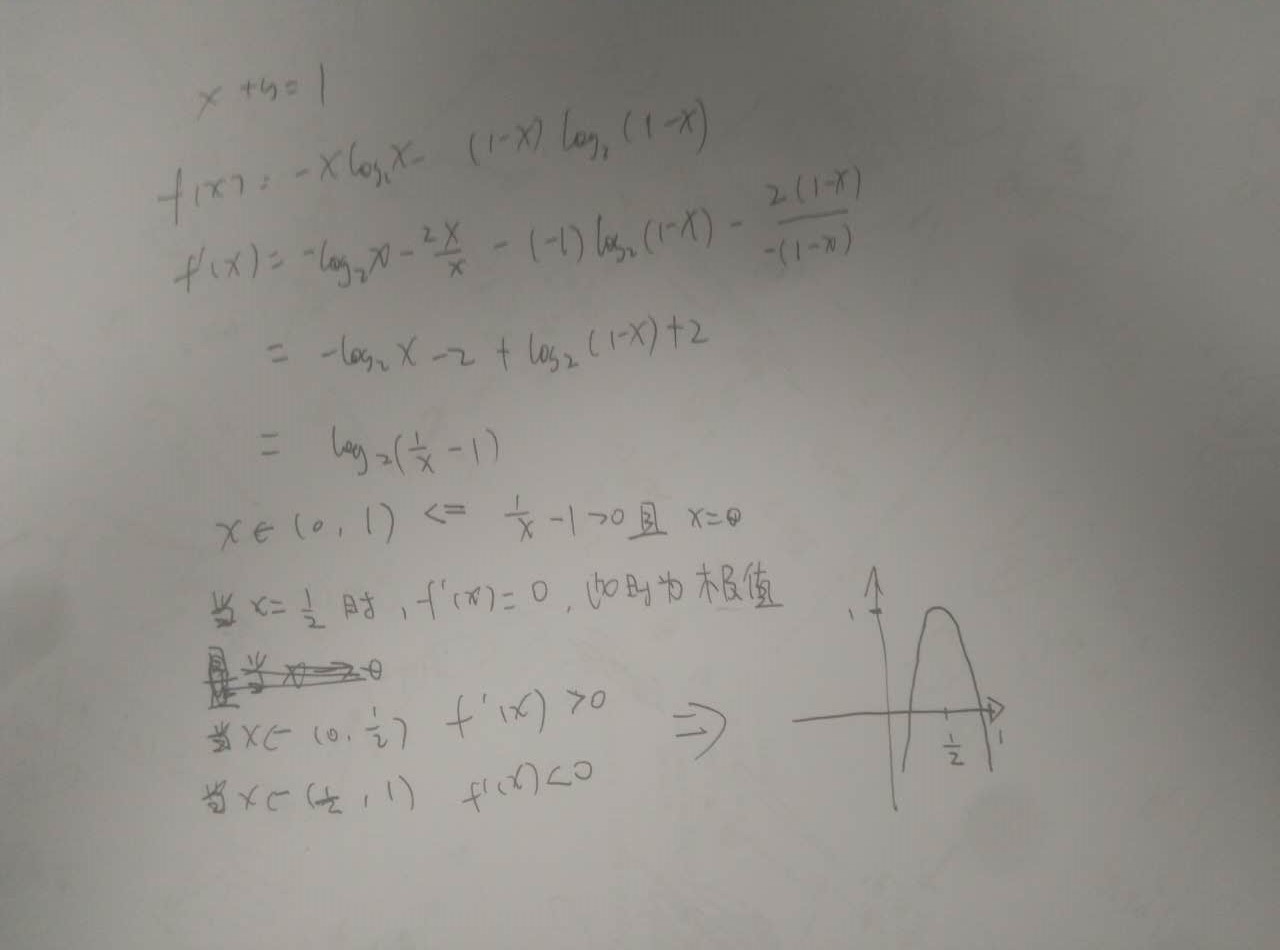 x + y = 1
f(x) = -x log₂x - (1-x) log₂ (1-x)
f'(x) = -log₂x - 2x/x - (-1) log₂ (1-x) - 2(1-x)/-(1-x)
= -log₂ x - 2 + log₂ (1-x) + 2
= log₂(1/x - 1)
x ∈ (0, 1) <= 1/x - 1 > 0 且 x = 0
当 x = 1/2 时, f'(x) = 0, 为极值
当 x ∈ (0, 1/2) f'(x) > 0 ⇒
当 x ∈ (1/2, 1) f'(x) < 0
1
1/2 1